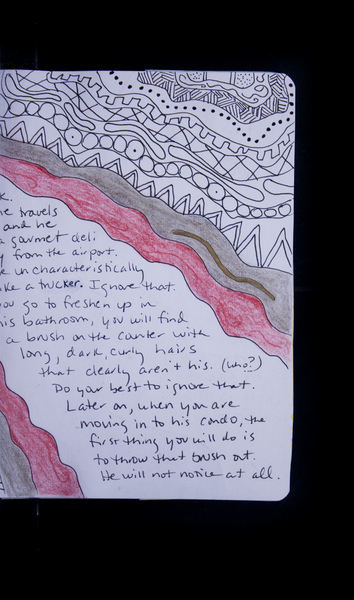 k.
he travels
and he
a gourmet deli
y from the airport.
e uncharacteristically
ike a trucker. Ignore that.
ou go to freshen up in
his bathroom, you will find
a brush on the counter with
long, dark, curly hairs
that clearly aren't his. (who?)
Do your best to ignore that.
Later on, when you are
moving in to his condo, the
first thing you will do is
to throw that brush out.
He will not notice at all.